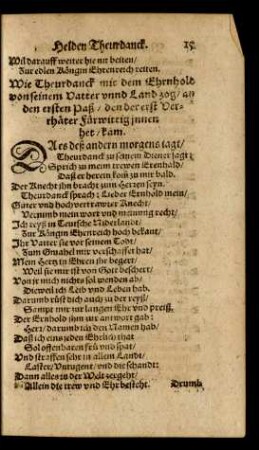 Helden Theurdanck. 15
Wil darauff weiter hie nit beiten/
Zur edlen Köngin Ehrenreich reiten.
Wie Theurdanck mit dem Ehrnhold
von seinem Vatter vnnd Land zog/ an
den ersten Paß/ den der erst Ver-
rhäter Fürwittig innen
het/ kam.
DA es deß andern morgens tagt/
Theurdanck zu seinem Diener sagt:
Sprich zu meim trewen Ernhald/
Daß er herein kom zu mir bald.
Der Knecht ihn bracht zum Herren sein.
Theurdanck sprach: Lieber Ernhold mein/
Guter vnd hochvertrawter Knecht/
Vernimb mein wort vnd meinung recht/
Ich reyß in Teutsche Niderlandt/
Zur Köngin Ehenreich hoch bekant/
Ihr Vatter sie vor seinem Todt/
Zum Gmahel mir verschaffet hat/
Mein Hertz in Ehren sie begert/
Weil sie mir ist von Gott beschert/
Von jr mich nichts sol wenden ab/
Dieweil ich Leib vnd Leben hab.
Darumb rüst dich auch zu der reyß/
Sampt mir zur langen Ehr vnd preiß.
Der Ernhold ihm zur antwort gab:
Herr/ darumb ich den Namen hab/
Daß ich eins jeden Ehrlich that
Sol offenbaren frü vnd spat/
Vnd straffen sehr in allem Landt/
Laster/ Vntugent/ vnd die schandt:
Dann alles zu der Welt zergeht/
Allein die trew vnd Ehr besteht. Drumb